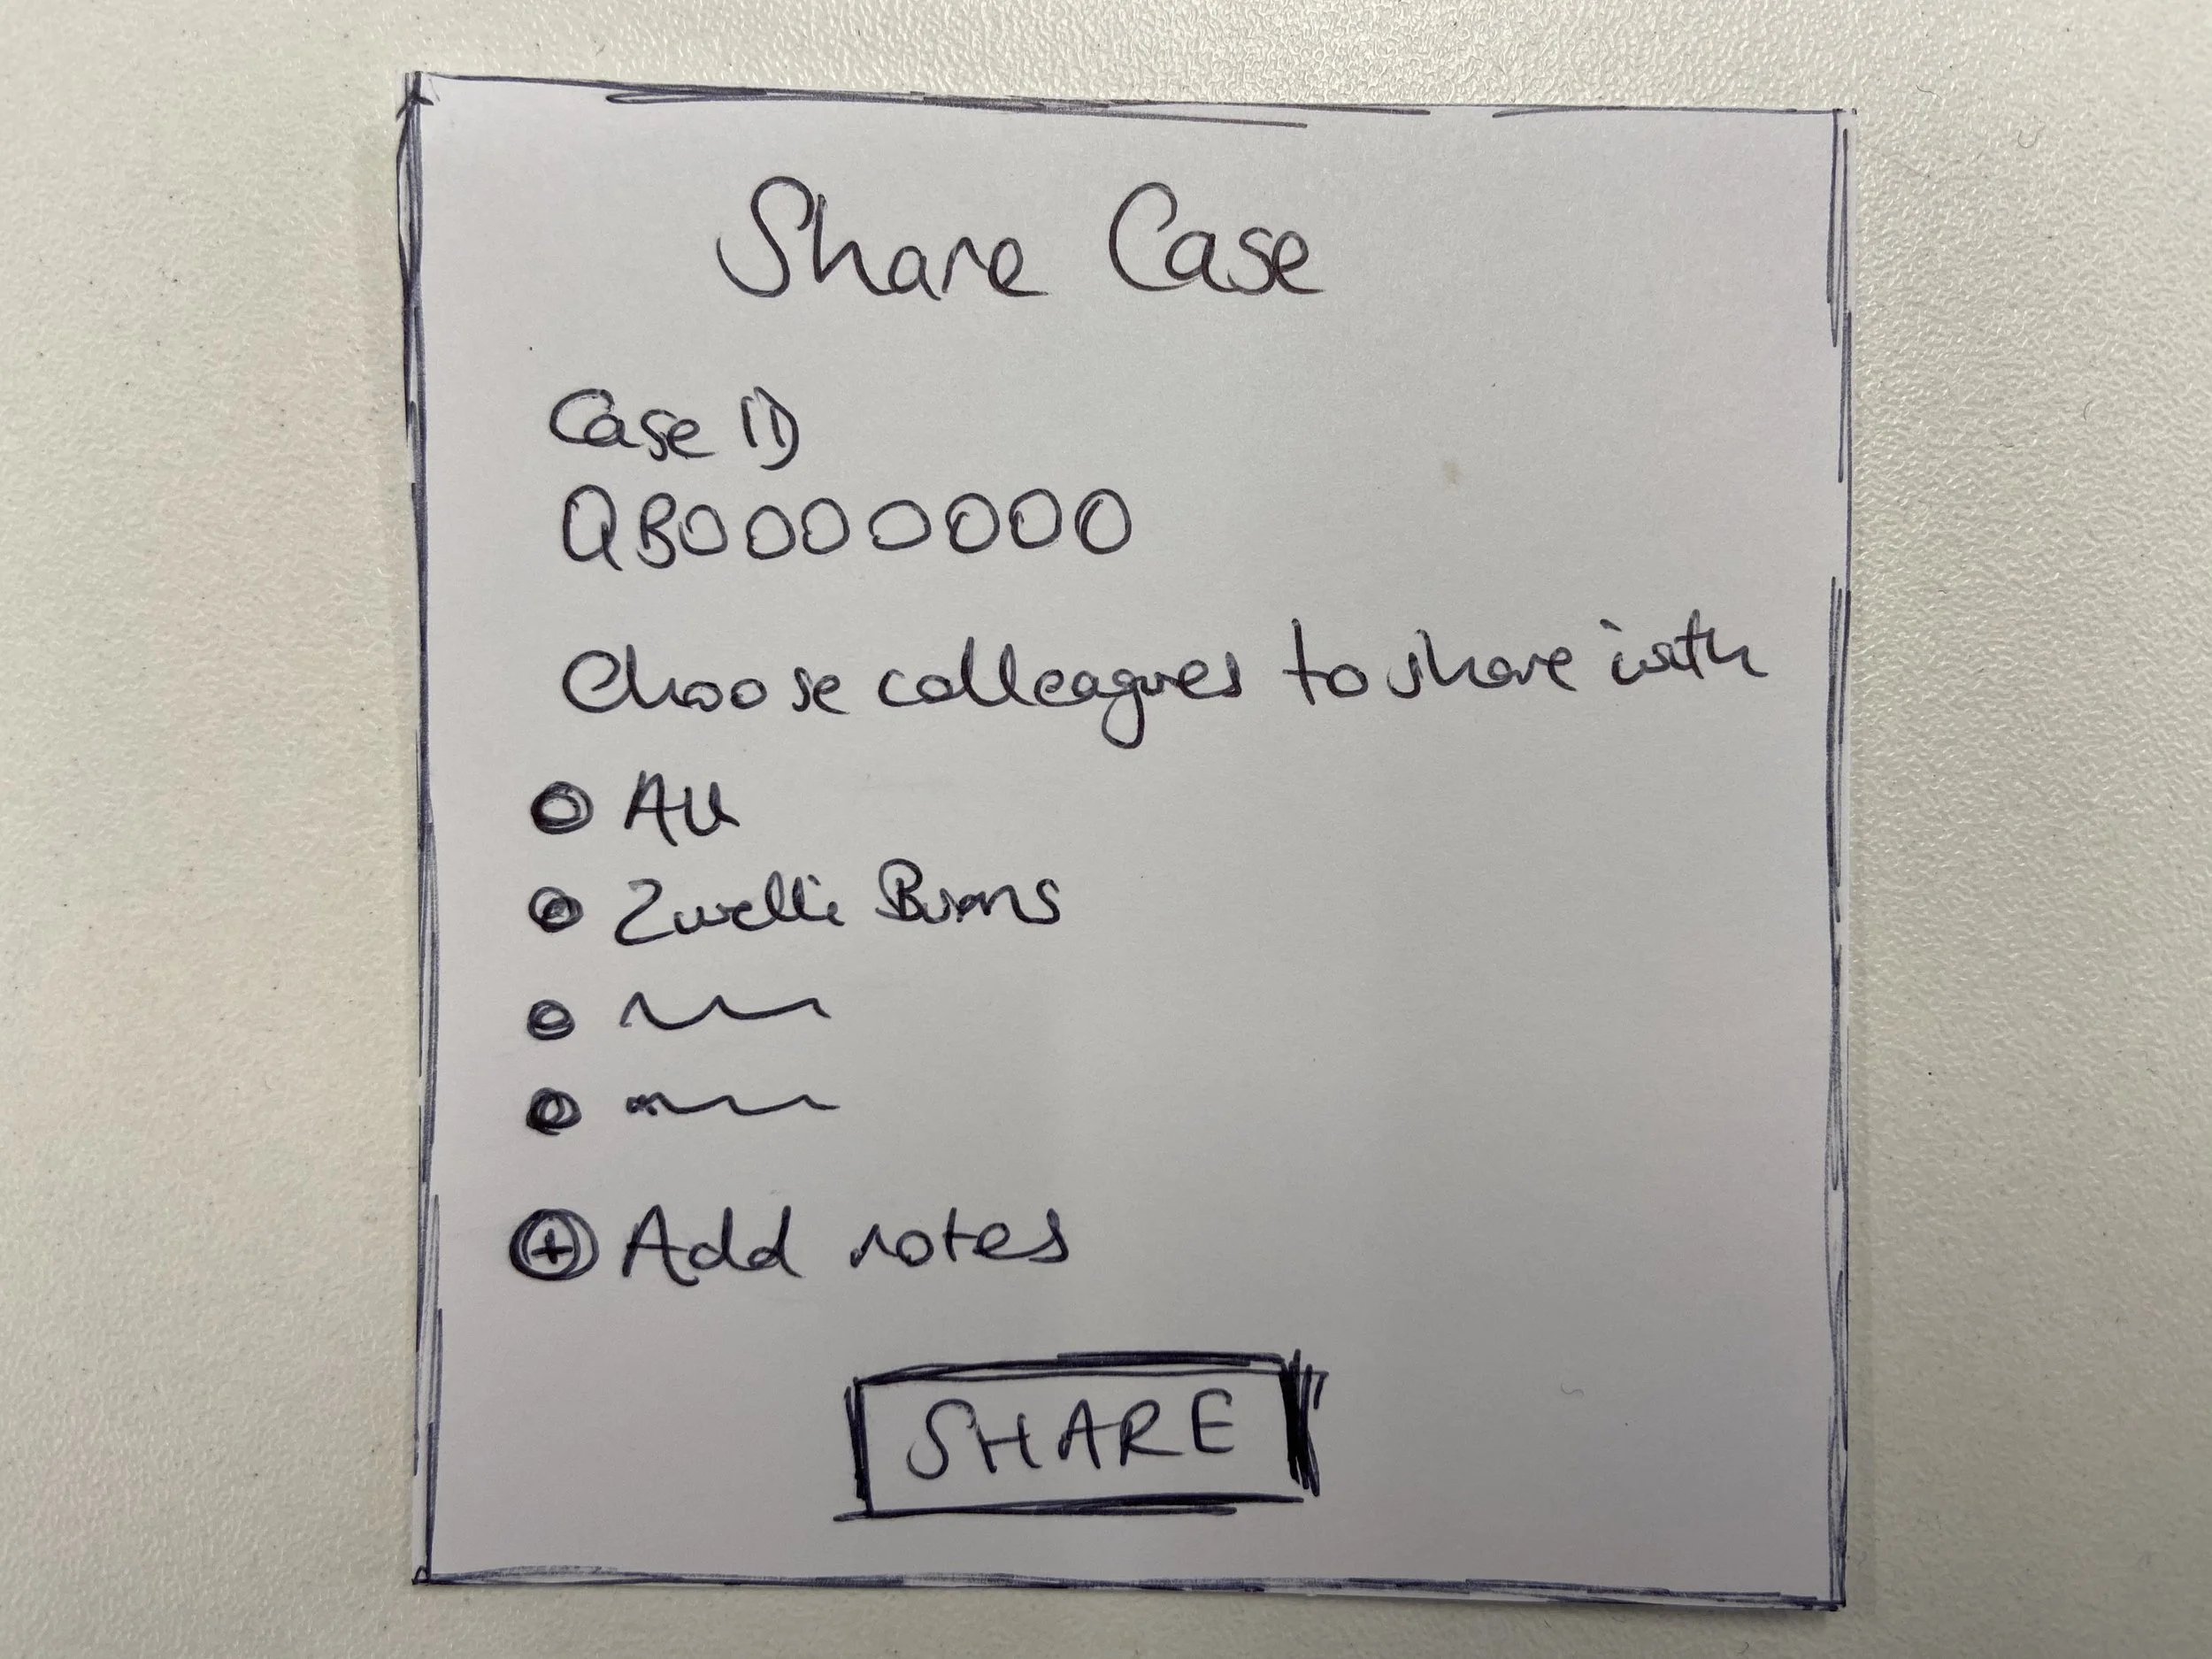 Share Case
Case ID
QB0000000
Choose colleagues to share with
All
Zwelli Burns
Add notes
SHARE